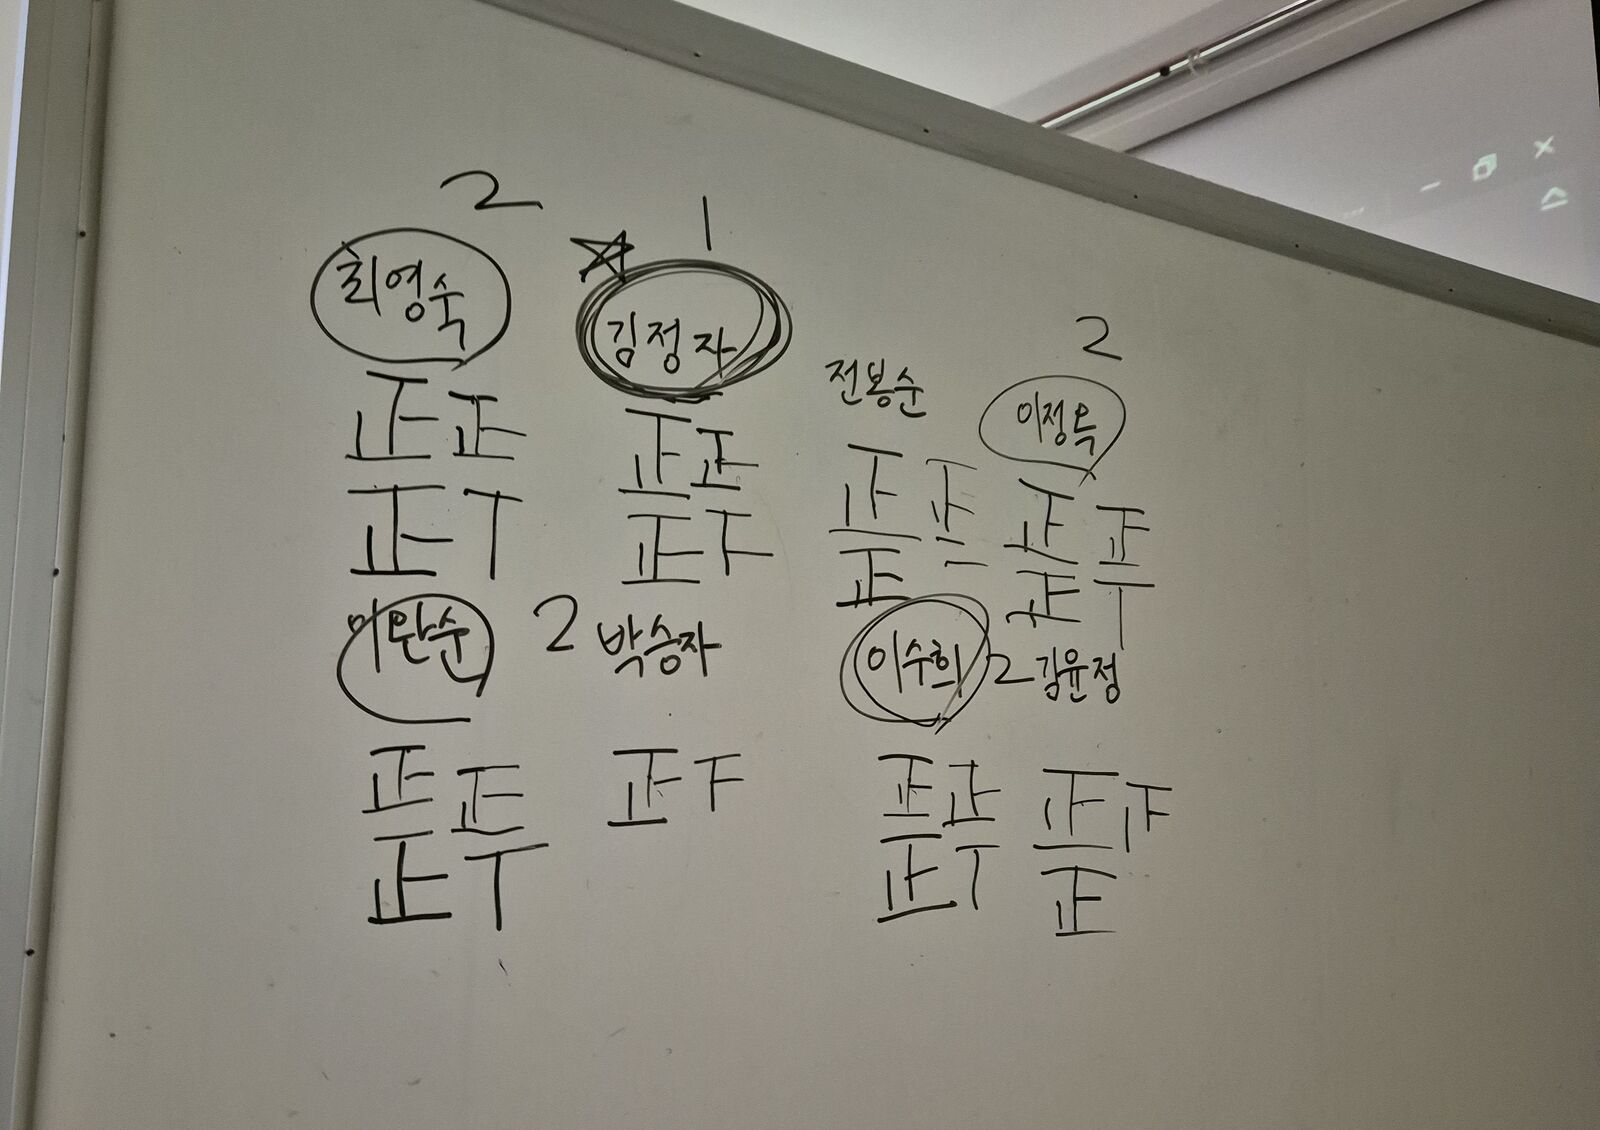 2 1
최영숙 김정자
2
전봉순 이정옥
正正 正正 正正 正正
正T 正下 正 正T
이완순 2 박승자 이수희 2 김윤정
正正 正下 正正 正下
正T 正T 正